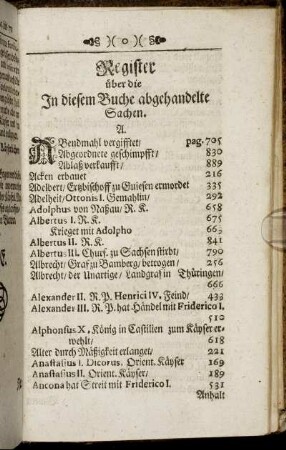 )( o )(
Register
über die
In diesem Buche abgehandelte
Sachen.
A.
ABendmahl vergifftet/ pag. 705
Abgeordnete geschimpfft/ 830
Ablaß verkaufft/ 889
Acken erbauet 216
Adelbert/ Ertzbischoff zu Gniesen ermordet 335
Adelheit/ Ottonis I. Gemahlin/ 292
Adolphus von Naßau/ R. K. 658
Albertus I. R. K. 675
Krieget mit Adolpho 663
Albertus II. R. K. 841
Albertus III. Churf. zu Sachsen stirbt/ 790
Albrecht/ Graf zu Bamberg/ betrogen/ 256
Albrecht/ der Unartige/ Landgraf in Thüringen/
666
Alexander II. R. P. Henrici IV. Feind/ 433
Alexander III. R. P. hat Händel mit Friderico I.
510
Alphonsus X. König in Castilien zum Käyser er-
wehlt/ 618
Alter durch Mäßigkeit erlanget/ 221
Anastasius I. Dicorus. Orient. Käyser 169
Anastasius II. Orient. Käyser/ 189
Ancona hat Streit mit Friderico I. 531
Anhalt